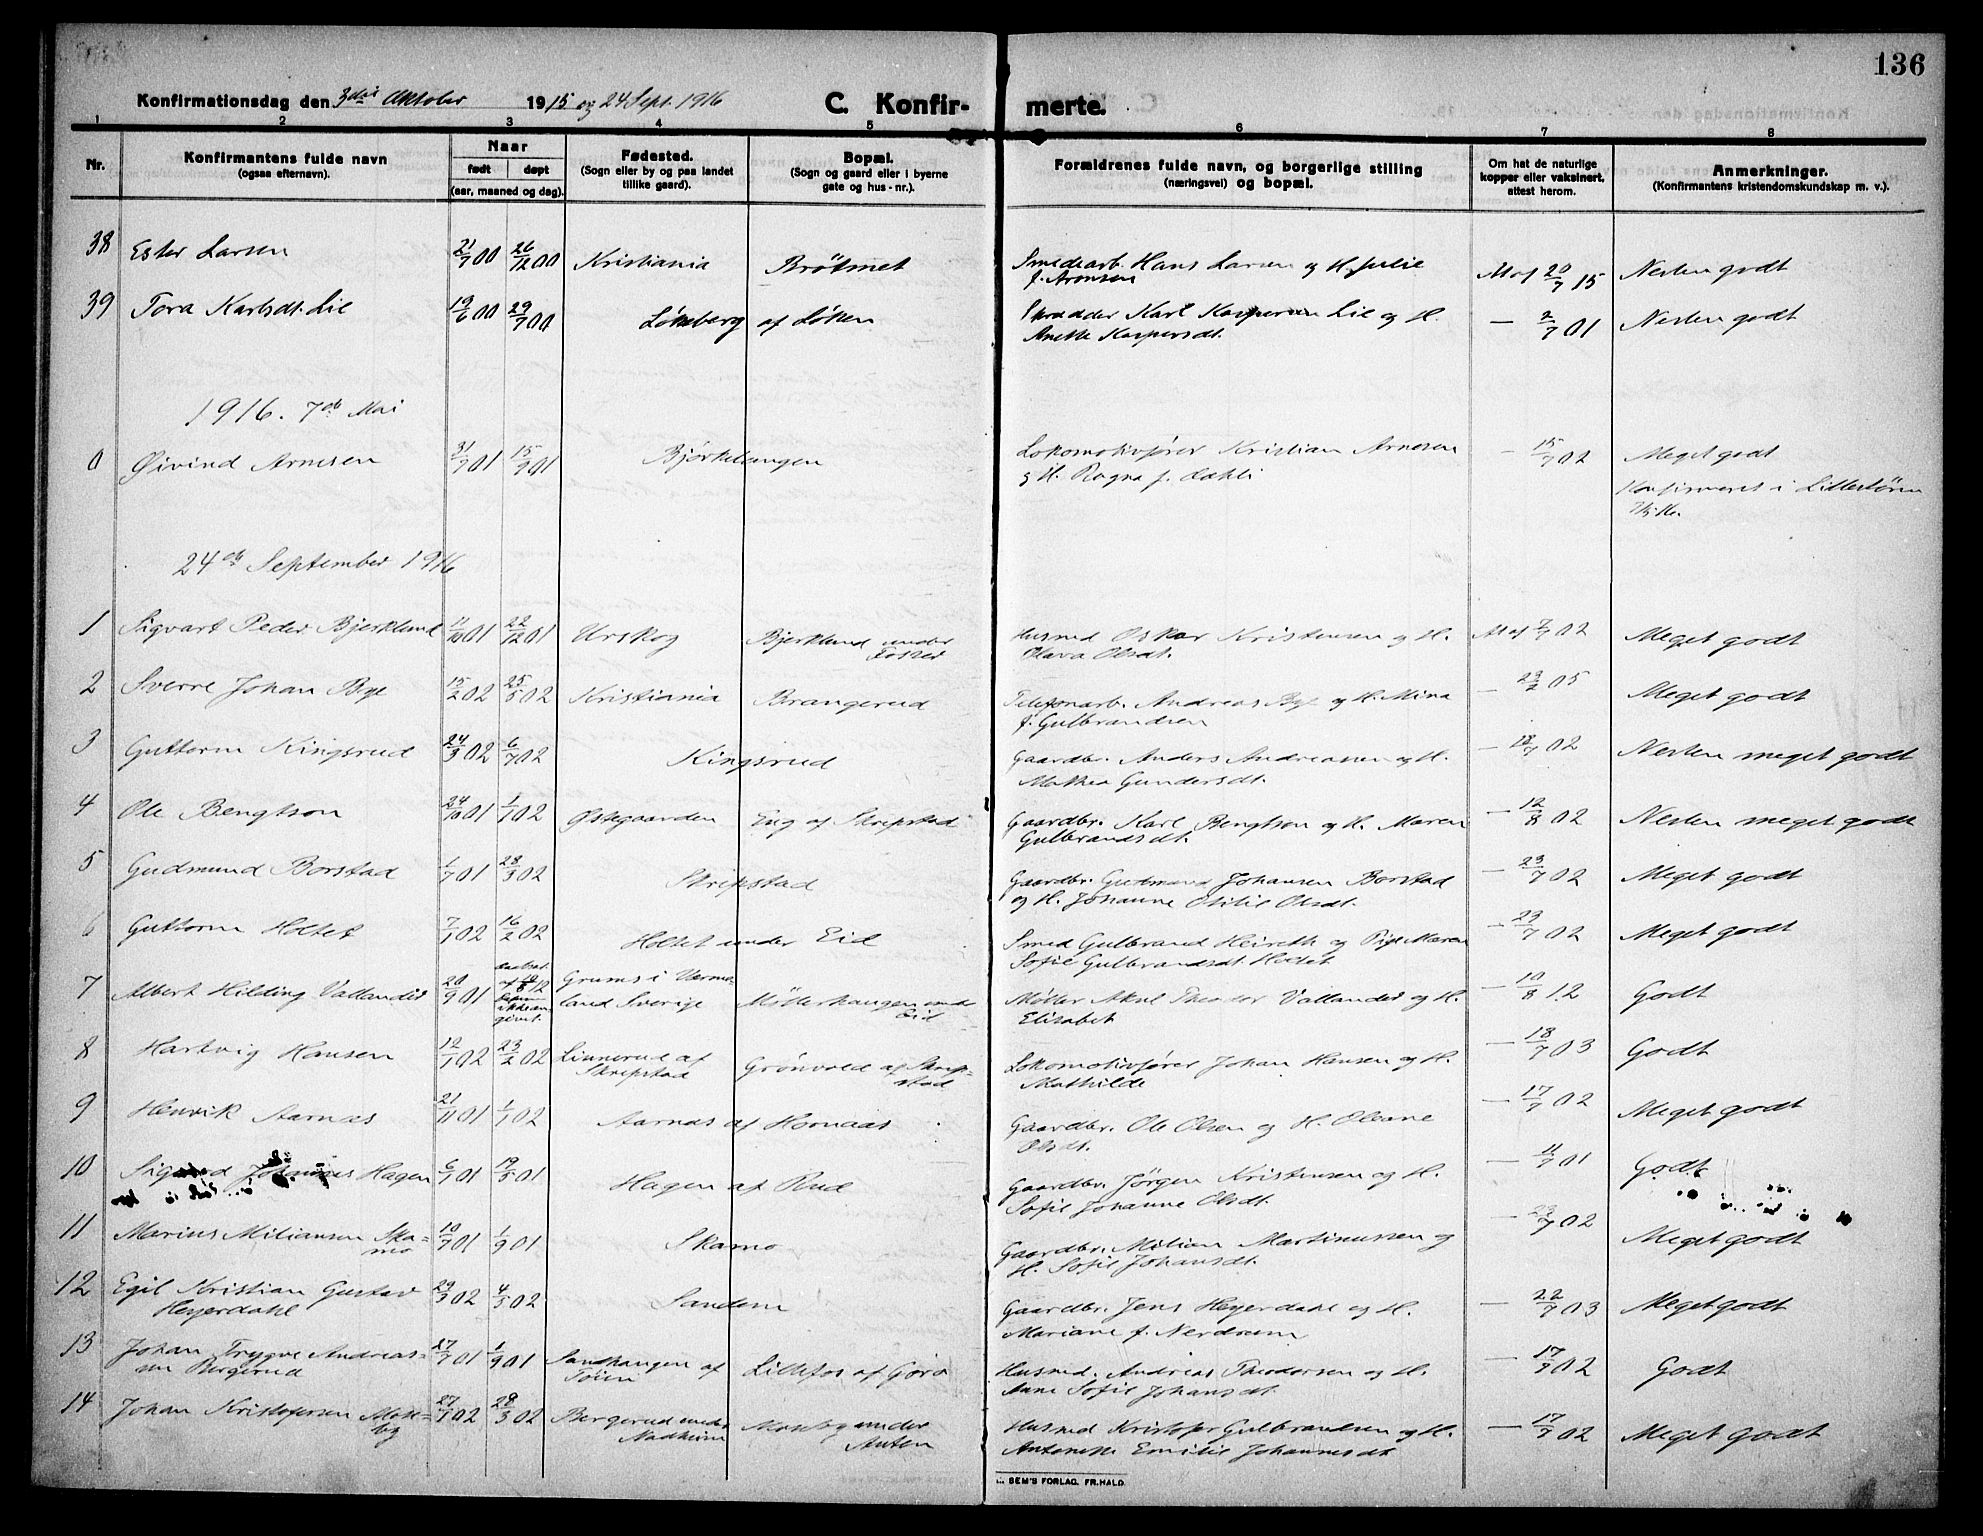 136
Konfirmationsdag den 3die Oktober 1915 og 24 Sept. 1916 C. Konfir- merte.
1 2 3 4 5 6 7 8
Nr. Konfirmantens fulde navn (ogsaa efternavn). Naar født døpt (aar, maaned og dag). Fødested. (Sogn eller by og paa landet tillike gaard). Bopæl. (Sogn og gaard eller i byerne gate og hus-nr.). Forældrenes fulde navn, og borgerlige stilling (næringsvei) og bopæl. Om hat de naturlige kopper eller vaksinert, attest herom. Anmerkninger. (Konfirmantens kristendomskundskap m. v.).
38 Ester Larsen 21/7 00 26/12 00 Kristiania Brøtmet Smedearb. Hans Larsen og H. Julie Maf 20/7 15 Nesten godt
f. Aronsen
39 Tora Karlsdt. Lie 19/6 00 29/7 00 Løkeberg af Løken Skrædder Karl Kaspersen Lie og H. — 2/7 01 Nesten godt
Anette Kaspersdt.
1916. 7de Mai
0 Øivind Arnesen 31/7 01 15/9 01 Bjørkelangen Lokomotivfører Kristian Arnesen — 15/7 02 Meget godt
og H. Ragna f. Dahli Konfirmeret i Lillestrøm
24de September 1916
1 Sigvart Peder Bjerklund 11/10 01 22/12 01 Urskog Bjerklund under Husmd Oskar Kristensen og H. Maf 7/7 02 Meget godt
Fosser Olava Olsdt.
2 Sverre Johan Bye 15/2 02 25/5 02 Kristiania Brangerud Telefonarb. Andreas Bye og H. Mina — 23/2 05 Meget godt
f. Gulbrandsen
3 Guttorm Kingsrud 24/3 02 6/7 02 Kingsrud Gaardbr. Anders Andreassen og H. — 18/7 02 Nesten meget godt
Mathea Gundersdt.
4 Ole Bengtson 24/10 01 1/1 02 Østegaarden Eng af Skripstad Gaardbr. Karl Bengtson og H. Maren — 12/8 02 Nesten meget godt
Gulbrandsdt.
5 Gudmund Borstad 1/7 01 28/3 02 Skripstad Gaardbr. Gudmund Johansen Borstad — 23/7 02 Meget godt
og H. Johanne Otilie Olsdt.
6 Guttorm Holtet 7/1 02 16/2 02 Holtet under Eid Smed Gulbrand Heireth og Pige Maren — 23/7 02 Meget godt
Sofie Gulbrandsdt. Holtet
7 Albert Hilding Vallander 20/9 01 Grums i Verme- Møllerhaugen under Møller Axel Theodor Vallander og H. — 10/8 12 Godt
land Sverige Eid Elisabet
8 Hartvig Hansen 12/1 02 23/2 02 Linnerud af Grønvold af Skrip- Lokomotivfører Johan Hansen og H. — 18/7 03 Godt
Skripstad stad Mathilde
9 Henrik Aarnæs 21/11 01 1/1 02 Aarnæs af Hornaas Gaardbr. Ole Olsen og H. Oleane — 17/7 02 Meget godt
Olsdt.
10 Sigurd Johannes Hagen 6/7 01 19/5 01 Hagen af Rud Gaardbr. Jørgen Kristensen og H. — 11/7 01 Godt
Sofie Johanne Olsdt.
11 Marius Miliansen Ska- 10/7 01 1/9 01 Skamo Gaardbr. Milian Martinussen og — 23/7 02 Meget godt
mo H. Sofie Johansdt.
12 Egil Kristian Gustav 29/3 02 4/5 02 Sandem Gaardbr. Jens Heyerdahl og H. — 22/7 03 Meget godt
Heyerdahl Mariane f. Nerdrum
13 Johan Trygve Andreas- 27/7 01 1/9 01 Sandhaugen af Lillefos af Gørø Husmd. Andreas Theodorsen og H. — 17/7 02 Godt
sen Bergerud Anne Sofie Johansdt.
14 Johan Kristofersen Mose- 27/1 02 28/3 02 Bergerud under Moseby under Husmd Kristofer Gulbrandsen og H. — 17/7 02 Meget godt
by Nadheim Auten Antonette Emilie Johannesdt
SEM'S FORLAG, FR.HALD